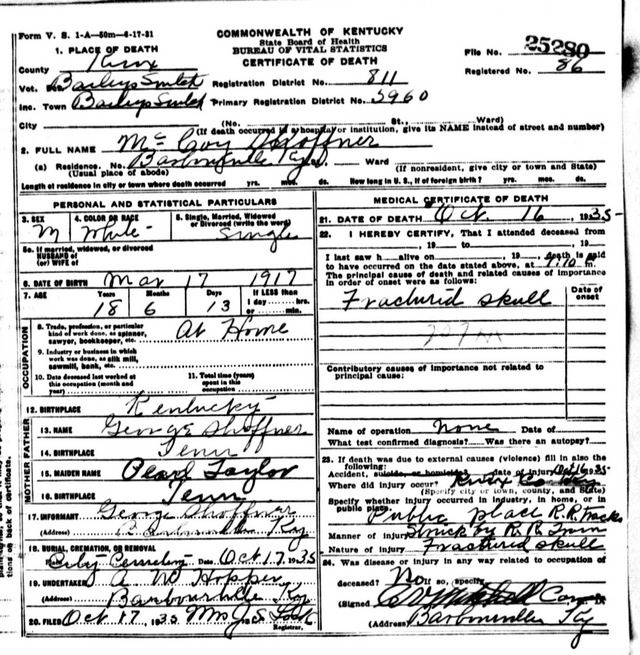 Form V. S. 1-A—50m—6-17-31
COMMONWEALTH OF KENTUCKY
State Board of Health
BUREAU OF VITAL STATISTICS
CERTIFICATE OF DEATH
File No. 25280
Registered No. 86
1. PLACE OF DEATH
County Knox
Vot. Baileys Switch Registration District No. 811
Inc. Town Baileys Switch Primary Registration District No. 5960
City (No. St., Ward)
(If death occurred in a hospital or institution, give its NAME instead of street and number)
2. FULL NAME McCoy Shoffner
(a) Residence. No. Barbourville Ky Ward
(Usual place of abode) (If nonresident, give city or town and State)
Length of residence in city or town where death occurred yrs. mos. ds. How long in U. S., if of foreign birth? yrs. mos. ds.
PERSONAL AND STATISTICAL PARTICULARS
3. SEX 4. COLOR OR RACE 5. Single, Married, Widowed
or Divorced (write the word)
M White Single
5a. If married, widowed, or divorced
HUSBAND of
(or) WIFE of
6. DATE OF BIRTH Mar 17 1917
7. AGE Years Months Days If LESS than
1 day hrs.
or min.
18 6 13
OCCUPATION
8. Trade, profession, or particular
kind of work done, as spinner,
sawyer, bookkeeper, etc. At Home
9. Industry or business in which
work was done, as silk mill,
sawmill, bank, etc.
10. Date deceased last worked at
this occupation (month and
year)
11. Total time (years)
spent in this
occupation
12. BIRTHPLACE Kentucky
FATHER
13. NAME George Shoffner
14. BIRTHPLACE Tenn
MOTHER
15. MAIDEN NAME Pearl Taylor
16. BIRTHPLACE Tenn
17. INFORMANT George Shoffner
(Address) Barbourville Ky
18. BURIAL, CREMATION, OR REMOVAL
City Cemetery Date Oct 17 1935
19. UNDERTAKER A W Hopper
(Address) Barbourville Ky
20. FILED Oct 17, 1935 Mrs J S Lock
Registrar.
MEDICAL CERTIFICATE OF DEATH
21. DATE OF DEATH Oct. 16, 1935
22. I HEREBY CERTIFY, That I attended deceased from
, 19 to , 19
I last saw h alive on , 19 , death is said
to have occurred on the date stated above, at m.
The principal cause of death and related causes of importance
in order of onset were as follows:
Date of
onset
Fractured skull
Contributory causes of importance not related to
principal cause:
Name of operation None Date of
What test confirmed diagnosis? Was there an autopsy?
23. If death was due to external causes (violence) fill in also the
following:
Accident, suicide, or homicide? date of injury Oct 16, 35
Where did injury occur? Knox Co Ky
(Specify city or town, county, and State)
Specify whether injury occurred in industry, in home, or in
public place. Public place R.R. Tracks
Manner of injury Struck by R. R. Train
Nature of injury Fractured skull
24. Was disease or injury in any way related to occupation of
deceased? No If so, specify
(Signed)
(Address) Barbourville Ky